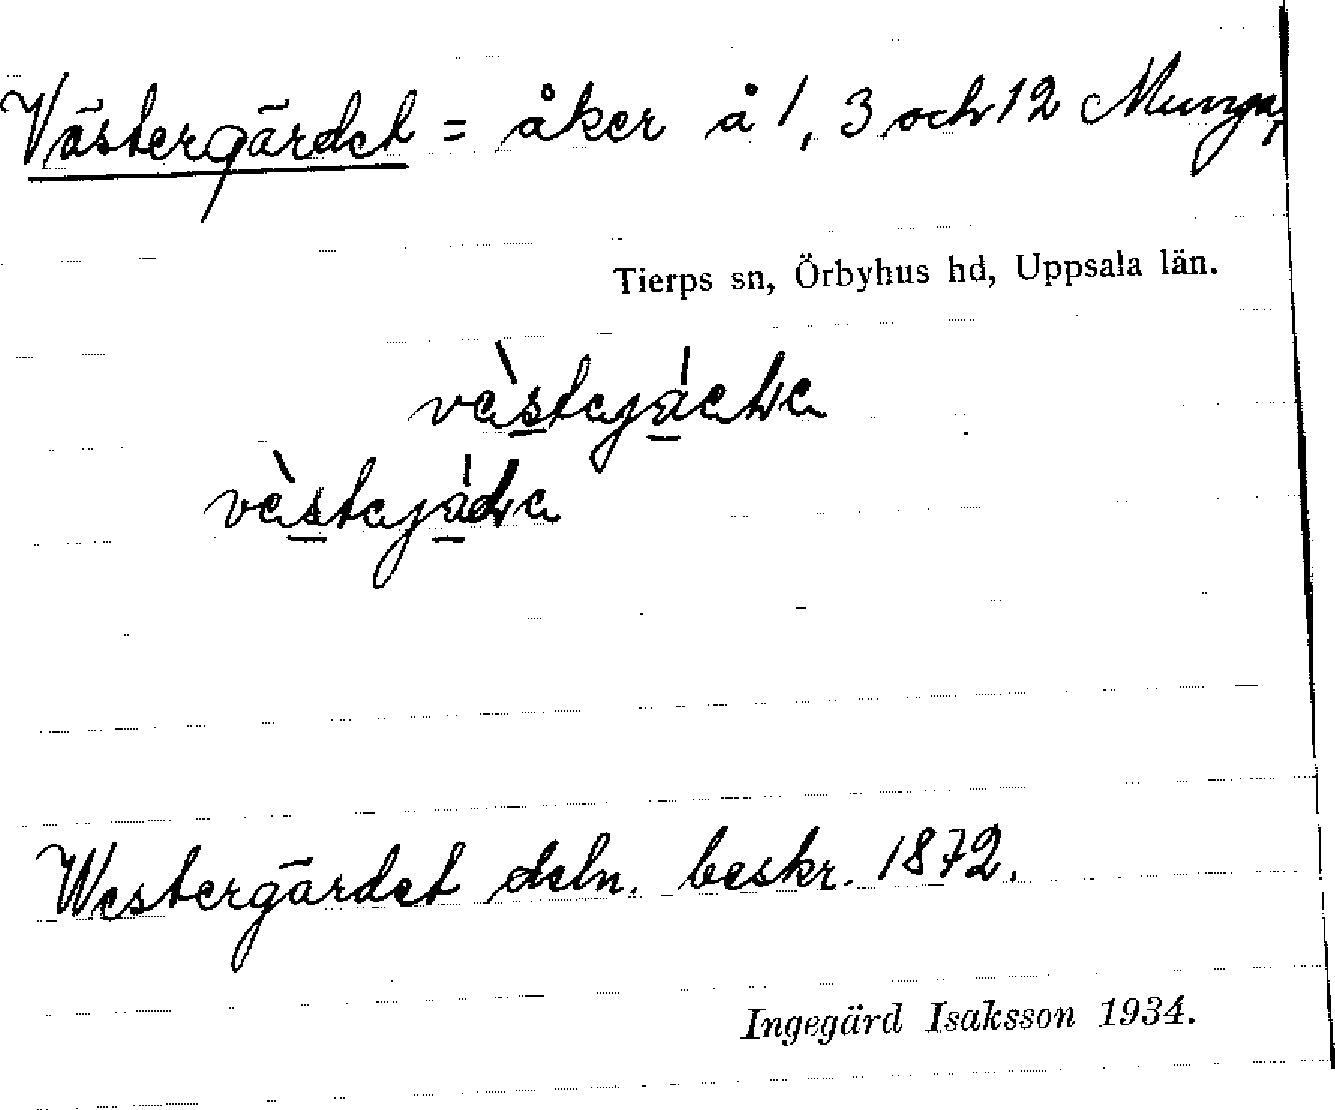 Västergärdet = åker å 1, 3 och 12 Munga,
Tierps sn, Örbyhus hd, Uppsala län.
Westergärdet deln. beskr. 1872.
Ingegärd Isaksson 1934.